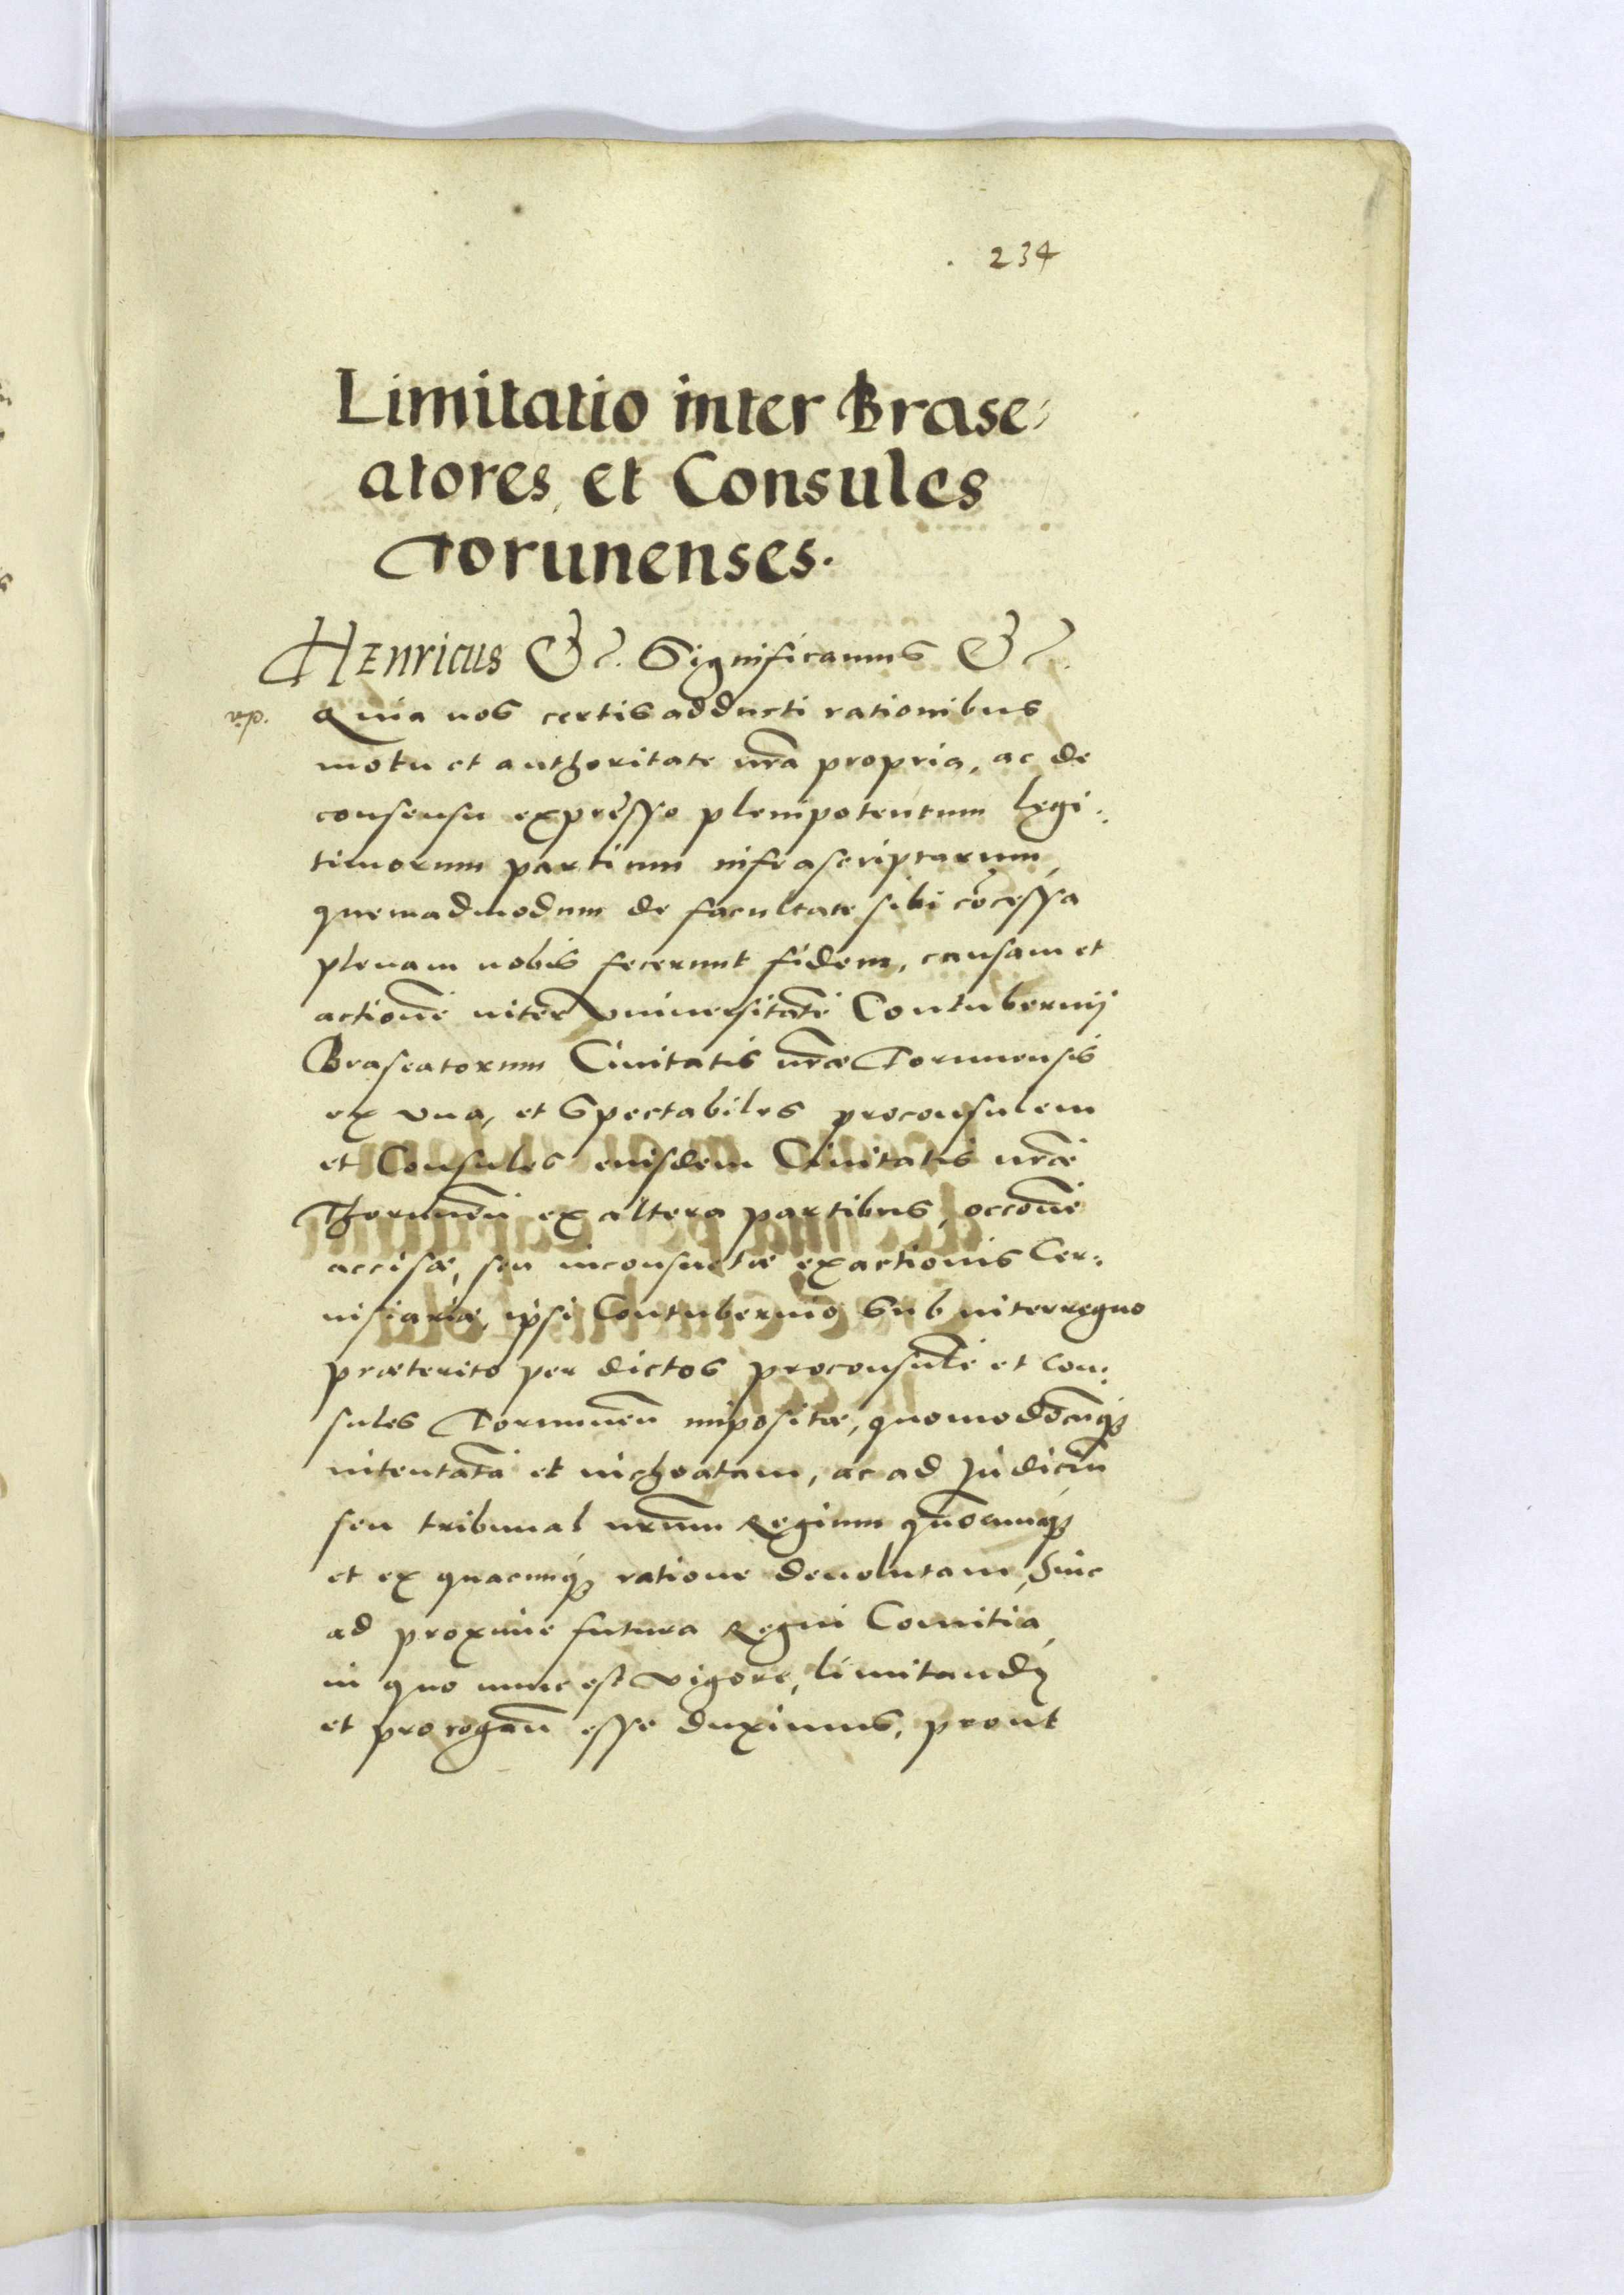 234
Limitatio inter Brase⸗
atores et Consules
Torunenses.
Henricus &c. Significamus &c.
Quia nos certis adducti rationibus
motu et authoritate nr̃a propria, ac de
consensu expresso plenipotentum legi⸗
timorum partium infrascriptarum,
quemadmodum de facultate sibi cõcessa
plenam nobis fecerunt fidem, causam et
actionẽ inter Vniversitatẽ Contubernij
Braseatorum Ciuitatis nr̃æ Torunensis
ex vna, et Spectabiles proconsulem
et Consules eiusdem Ciuitatis nr̃æ
Thorunẽn ex altera partibus, occõne
accisæ, seu inconsuetæ exactionis Cer⸗
uisiariæ, ipsi Contubernio sub interregno
præterito per dictos proconsulẽ et Con⸗
sules Torunnẽn impositæ, quomodocũq₃
intentatã et inchoatam, ac ad Judiciũ
seu tribunal nr̃um Regium quõcunq₃
et ex quacunq₃ ratione deuolutam, huic
ad proxime futura Regni Comitia,
in quo nunc est vigore, limitandã
et prorogañ esse duximus, prout